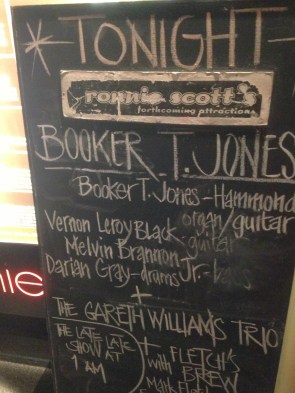 * TONIGHT
ronnie scott's
forthcoming attractions
BOOKER T. JONES
Booker T. Jones - Hammond
organ/guitar
Vernon Leroy Black - guitar
Melvin Brannon Jr. - bass
Darian Gray - drums
+
THE GARETH WILLIAMS TRIO
THE LATE LATE
SHOW AT
1 AM
+ FLETCH'S
BREW
with